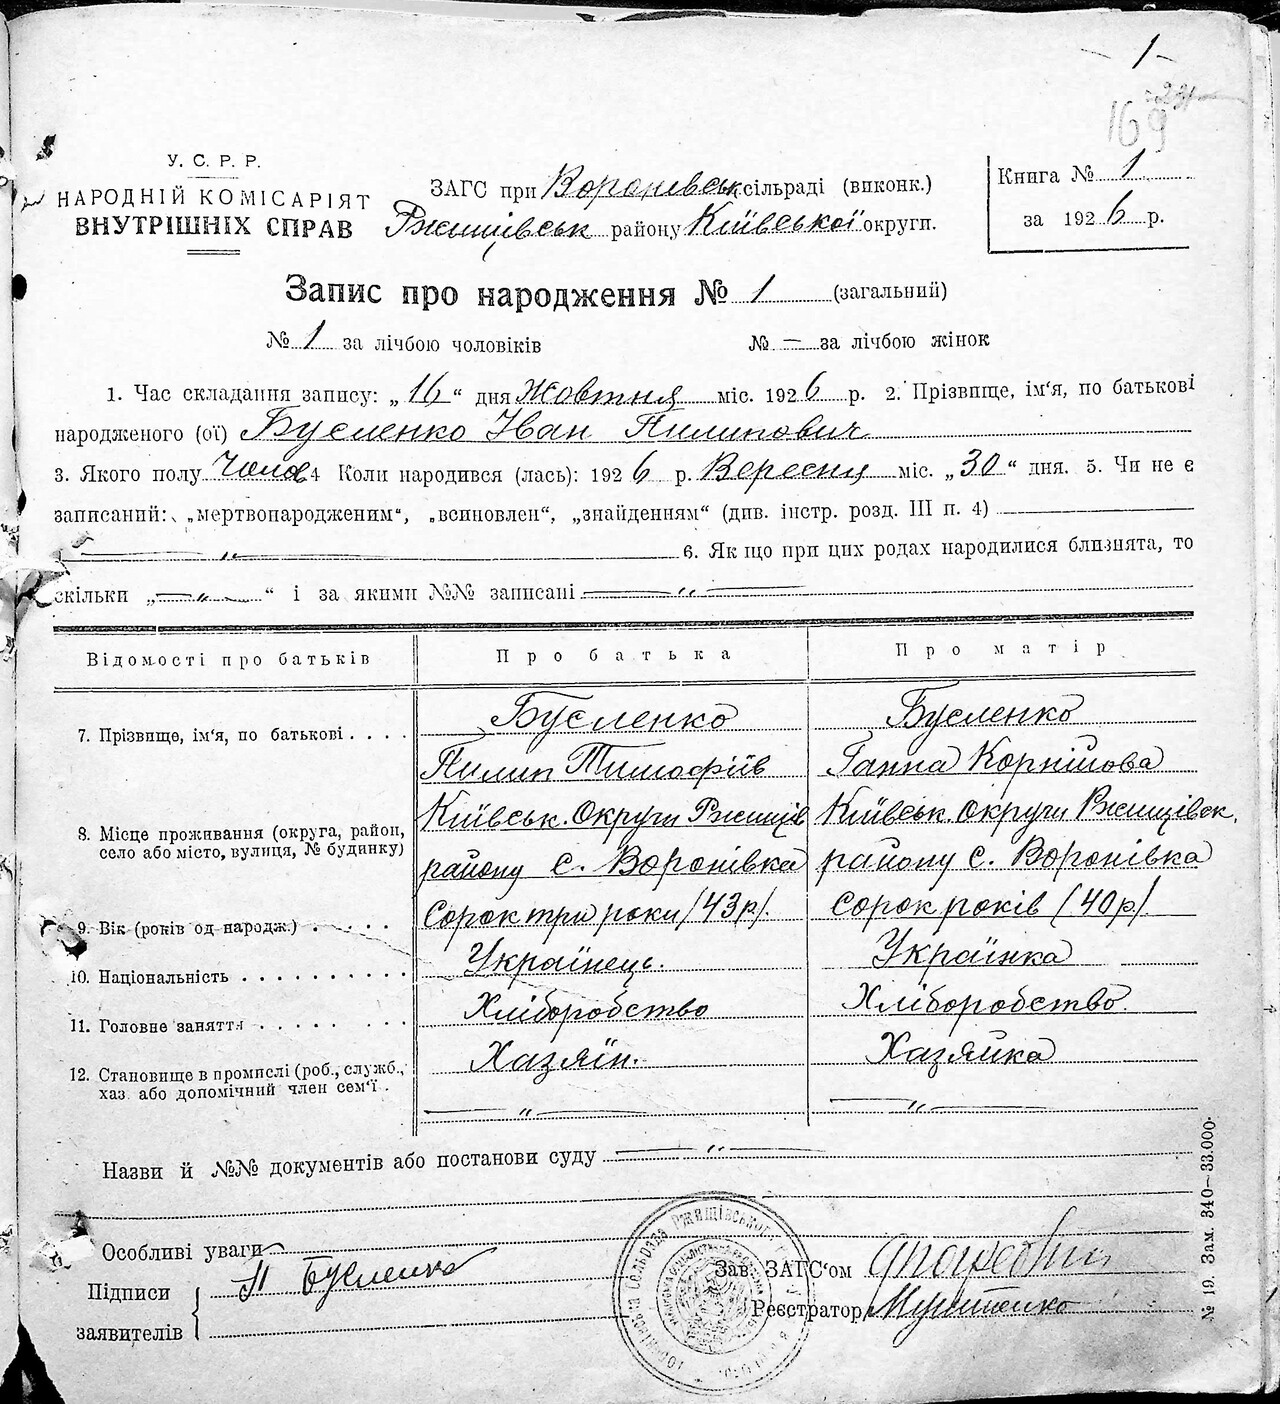 - 1 -
169
У. С. Р. Р.
НАРОДНІЙ КОМІСАРІЯТ
ВНУТРІШНІХ СПРАВ
ЗАГС при Воронівськ сільраді (виконк.)
Ржищівськ району Київської округи.
Книга № 1
за 1926 р.
Запис про народження № 1 (загальний)
№ 1 за лічбою чоловіків № — за лічбою жінок
1. Час складання запису: „16“ дня Жовтня міс. 1926 р. 2. Прізвище, ім‘я, по батькові
народженого (ої) Бусленко Іван Пилипович
3. Якого полу Чолов 4 Коли народився (лась): 1926 р. Вересня міс. „30“ дня. 5. Чи не є
записаний: „мертвонародженим“, „всиновлен“, „знайденням“ (див. інстр. розд. III п. 4) —
— „ — 6. Як що при цих родах народилися близнята, то
скільки „— „ —“ і за якими №№ записані — „ —
Відомості про батьків Про батька Про матір
7. Прізвище, ім‘я, по батькові . . . . Бусленко Бусленко
Пилип Тимофіїв Ганна Корнійова
8. Місце проживання (округа, район, село або місто, вулиця, № будинку) Київськ. Округи Ржищів Київськ. округи Ржищівськ.
району с. Воронівка району с. Воронівка
9. Вік (років од народж.) . . . . . Сорок три роки /43 р/. Сорок років /40 р/.
10. Національність . . . . . . . . . . Українець. Українка
11. Головне заняття . . . . . . . . Хліборобство Хліборобство.
12. Становище в промислі (роб., служб., хаз. або допомічний член сем‘ї . Хазяїн. Хазяйка
— „ — — „ —
Назви й №№ документів або постанови суду — „ —
Особливі уваги
Підписи П Бусленко
заявителів
Зав. ЗАГС‘ом
Реєстратор
№ 19. Зам. 340—33.000.